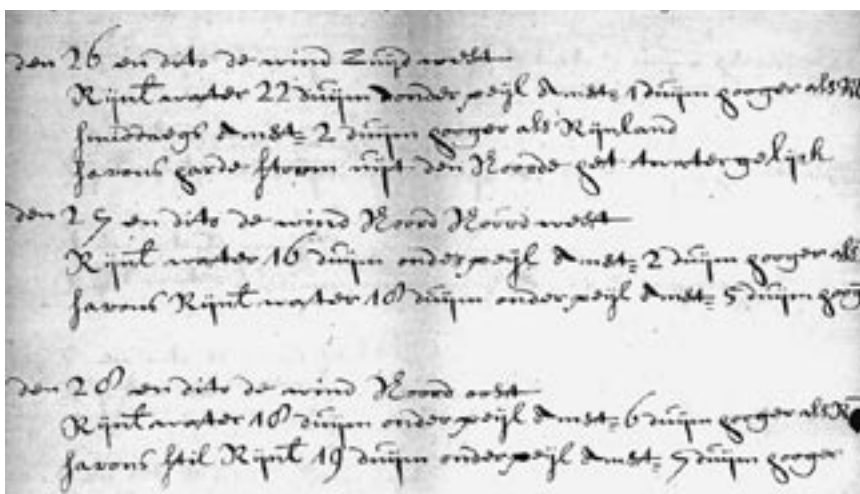 den 26 en dito de wind Zuijd west
Rijnl. water 22 duijm onder peijl Amst= 1 duijm hooger als
smiddaegs Amst= 2 duijm hooger als Rijnland
savons harde storm uijt den Noorde het twater gelijck
den 27 en dito de wind Noord Noord west
Rijnl. water 16 duijm onder peijl Amst= 2 duijm hooger als
savons Rijnl. water 18 duijm onder peijl Amst= 5 duijm
den 28 en dito de wind Noord oost
Rijnl. water 18 duijm onder peijl Amst= 6 duijm hooger als
savons stil Rijnl. 19 duijm onder peijl Amst= 7 duijm hooger